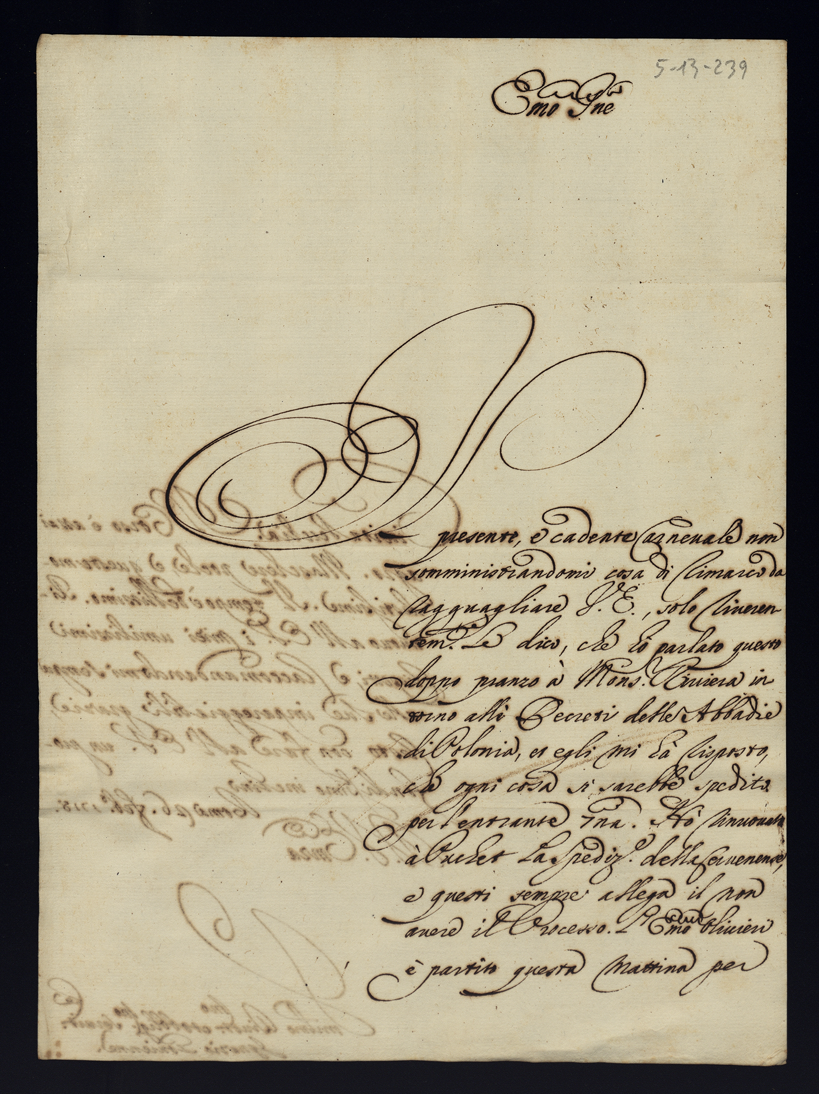 5-13-239
Emo Sne
Il presente, e cadente Carnevale non
somministrandomi cosa di rimarco da
ragguagliare V. E., solo riveren
tem.te Le dico, che hò parlato questo
doppo pranzo à Mons.r Riviera in
torno alli Decreti delle Abbadie
di Polonia, et egli mi hà risposto,
che ogni cosa si sarebbe spedita
per l'entrante 7na. Hò rinovata
à Puchet La Spediz.e della
e questi sempre allega il non
avere il Processo. L'Emo Olivieri
è partito questa mattina per